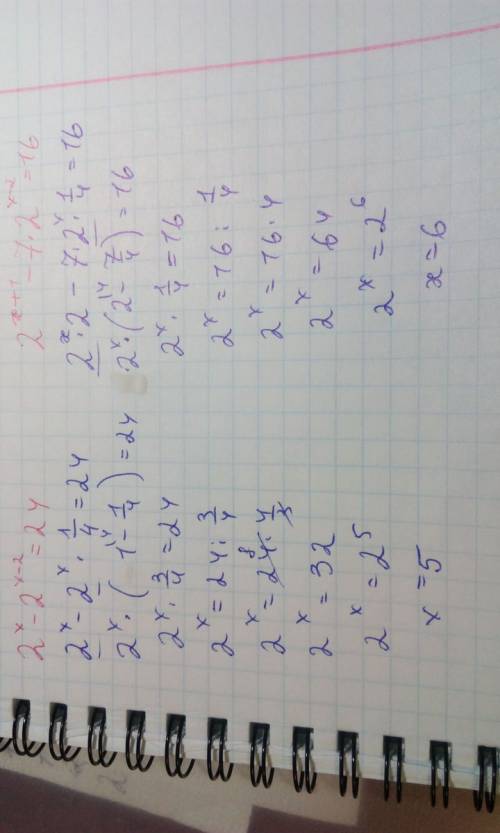 2^x - 2^{x-2} = 24
2^x - 2^x · 1/4 = 24
2^x · (1^{\4} - 1/4) = 24
2^x · 3/4 = 24
2^x = 24 : 3/4
2^x = 24^8 · 4/3
2^x = 32
2^x = 2^5
x = 5
2^{x+1} - 7 · 2^{x-2} = 16
2^x · 2 - 7 · 2^x · 1/4 = 16
2^x · (2^{\4} - 7/4) = 16
2^x · 1/4 = 16
2^x = 16 : 1/4
2^x = 16 · 4
2^x = 64
2^x = 2^6
x = 6